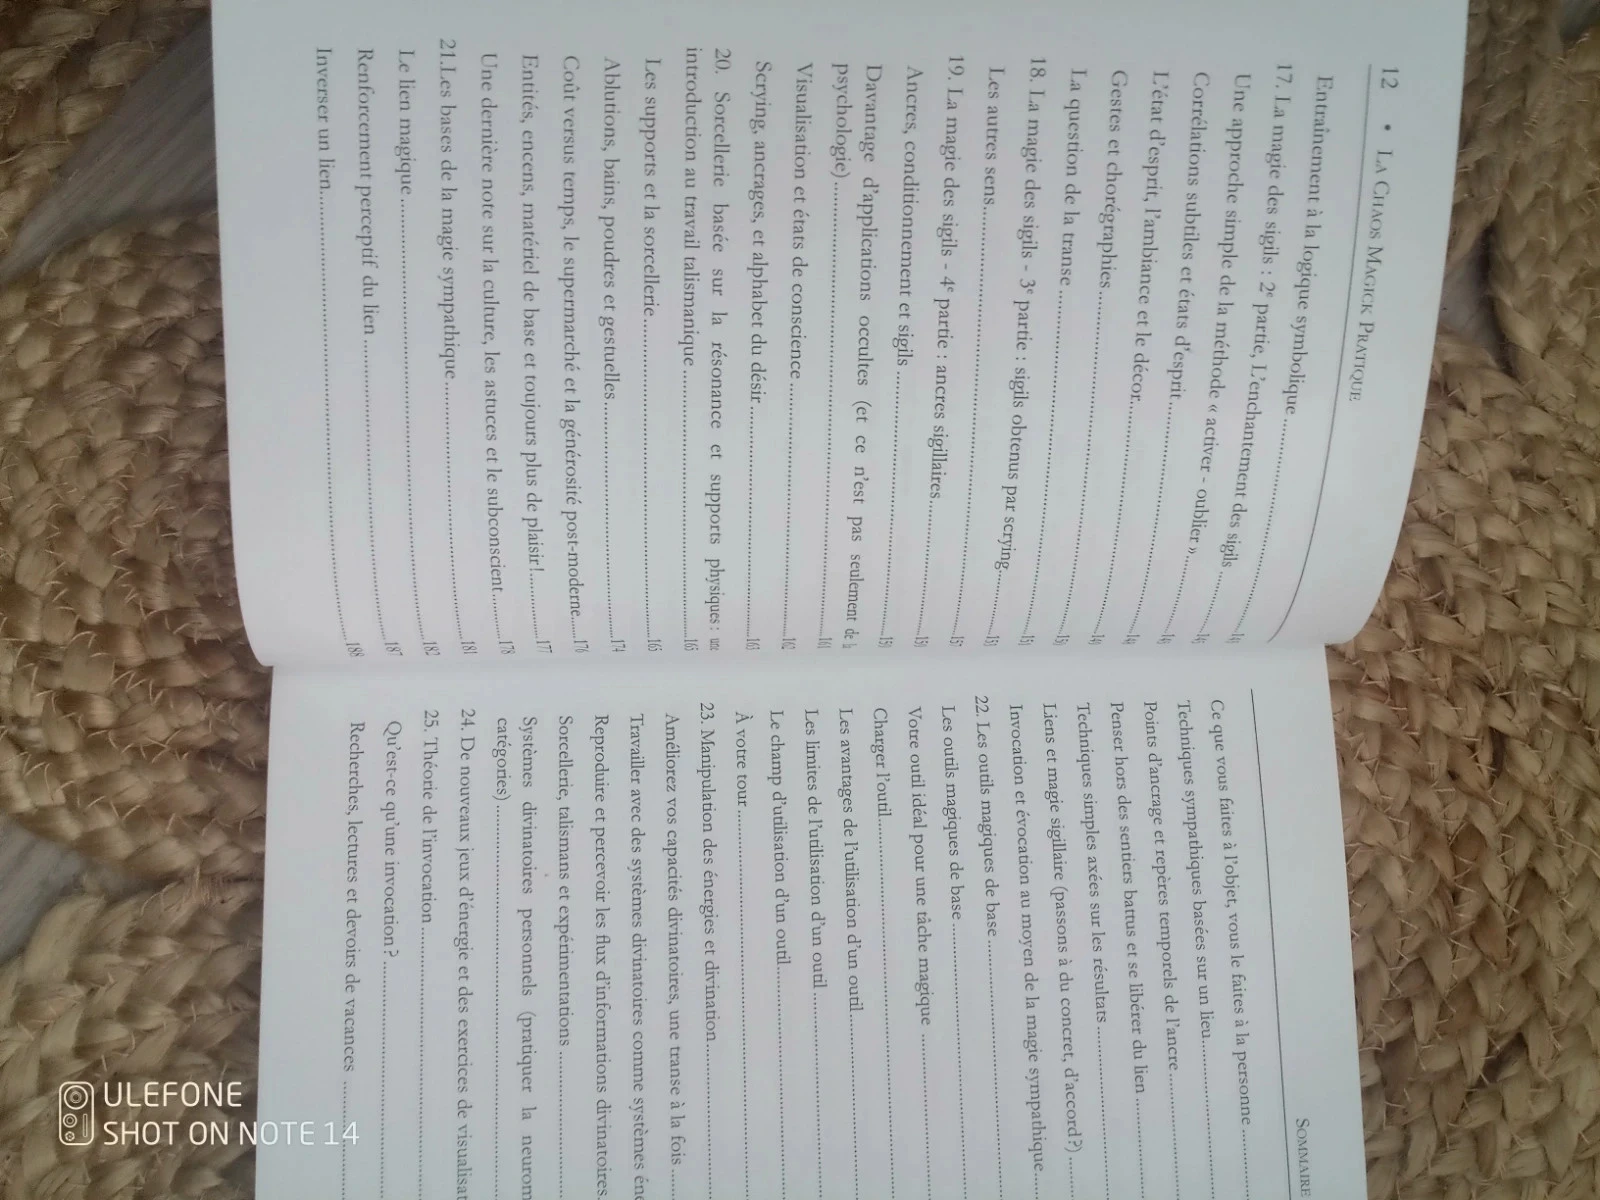 12 • LA CHAOS MAGICK PRATIQUE
Entraînement à la logique symbolique
17. La magie des sigils : 2e partie, L'enchantement des sigils
Une approche simple de la méthode « activer - oublier »
Corrélations subtiles et états d'esprit
L'état d'esprit, l'ambiance et le décor
Gestes et chorégraphies
La question de la transe
18. La magie des sigils - 3e partie : sigils obtenus par scrying
Les autres sens
19. La magie des sigils - 4e partie : ancres sigillaires
Ancres, conditionnement et sigils
Davantage d'applications occultes (et ce n'est pas seulement de la
psychologie)
Visualisation et états de conscience
Scrying, ancrages, et alphabet du désir
20. Sorcellerie basée sur la résonance et supports physiques : une
introduction au travail talismanique ..... 165
Les supports et la sorcellerie ..... 165
Ablutions, bains, poudres et gestuelles ..... 174
Coût versus temps, le supermarché et la générosité post-moderne ..... 176
Entités, encens, matériel de base et toujours plus de plaisir! ..... 177
Une dernière note sur la culture, les astuces et le subconscient ..... 178
21.Les bases de la magie sympathique ..... 181
Le lien magique ..... 182
Renforcement perceptif du lien ..... 187
Inverser un lien ..... 188
SOMMAIRE
Ce que vous faites à l'objet, vous le faites à la personne
Techniques sympathiques basées sur un lieu
Points d'ancrage et repères temporels de l'ancre
Penser hors des sentiers battus et se libérer du lien
Techniques simples axées sur les résultats
Liens et magie sigillaire (passons à du concret, d'accord?)
Invocation et évocation au moyen de la magie sympathique
22. Les outils magiques de base
Les outils magiques de base
Votre outil idéal pour une tâche magique
Charger l'outil
Les avantages de l'utilisation d'un outil
Les limites de l'utilisation d'un outil
Le champ d'utilisation d'un outil
À votre tour
23. Manipulation des énergies et divination
Améliorez vos capacités divinatoires, une transe à la fois
Travailler avec des systèmes divinatoires comme systèmes éne
Reproduire et percevoir les flux d'informations divinatoires
Sorcellerie, talismans et expérimentations
Systèmes divinatoires personnels (pratiquer la neurom
catégories)
24. De nouveaux jeux d'énergie et des exercices de visualisat
25. Théorie de l'invocation
Qu'est-ce qu'une invocation ?
Recherches, lectures et devoirs de vacances
ULEFONE
SHOT ON NOTE 14